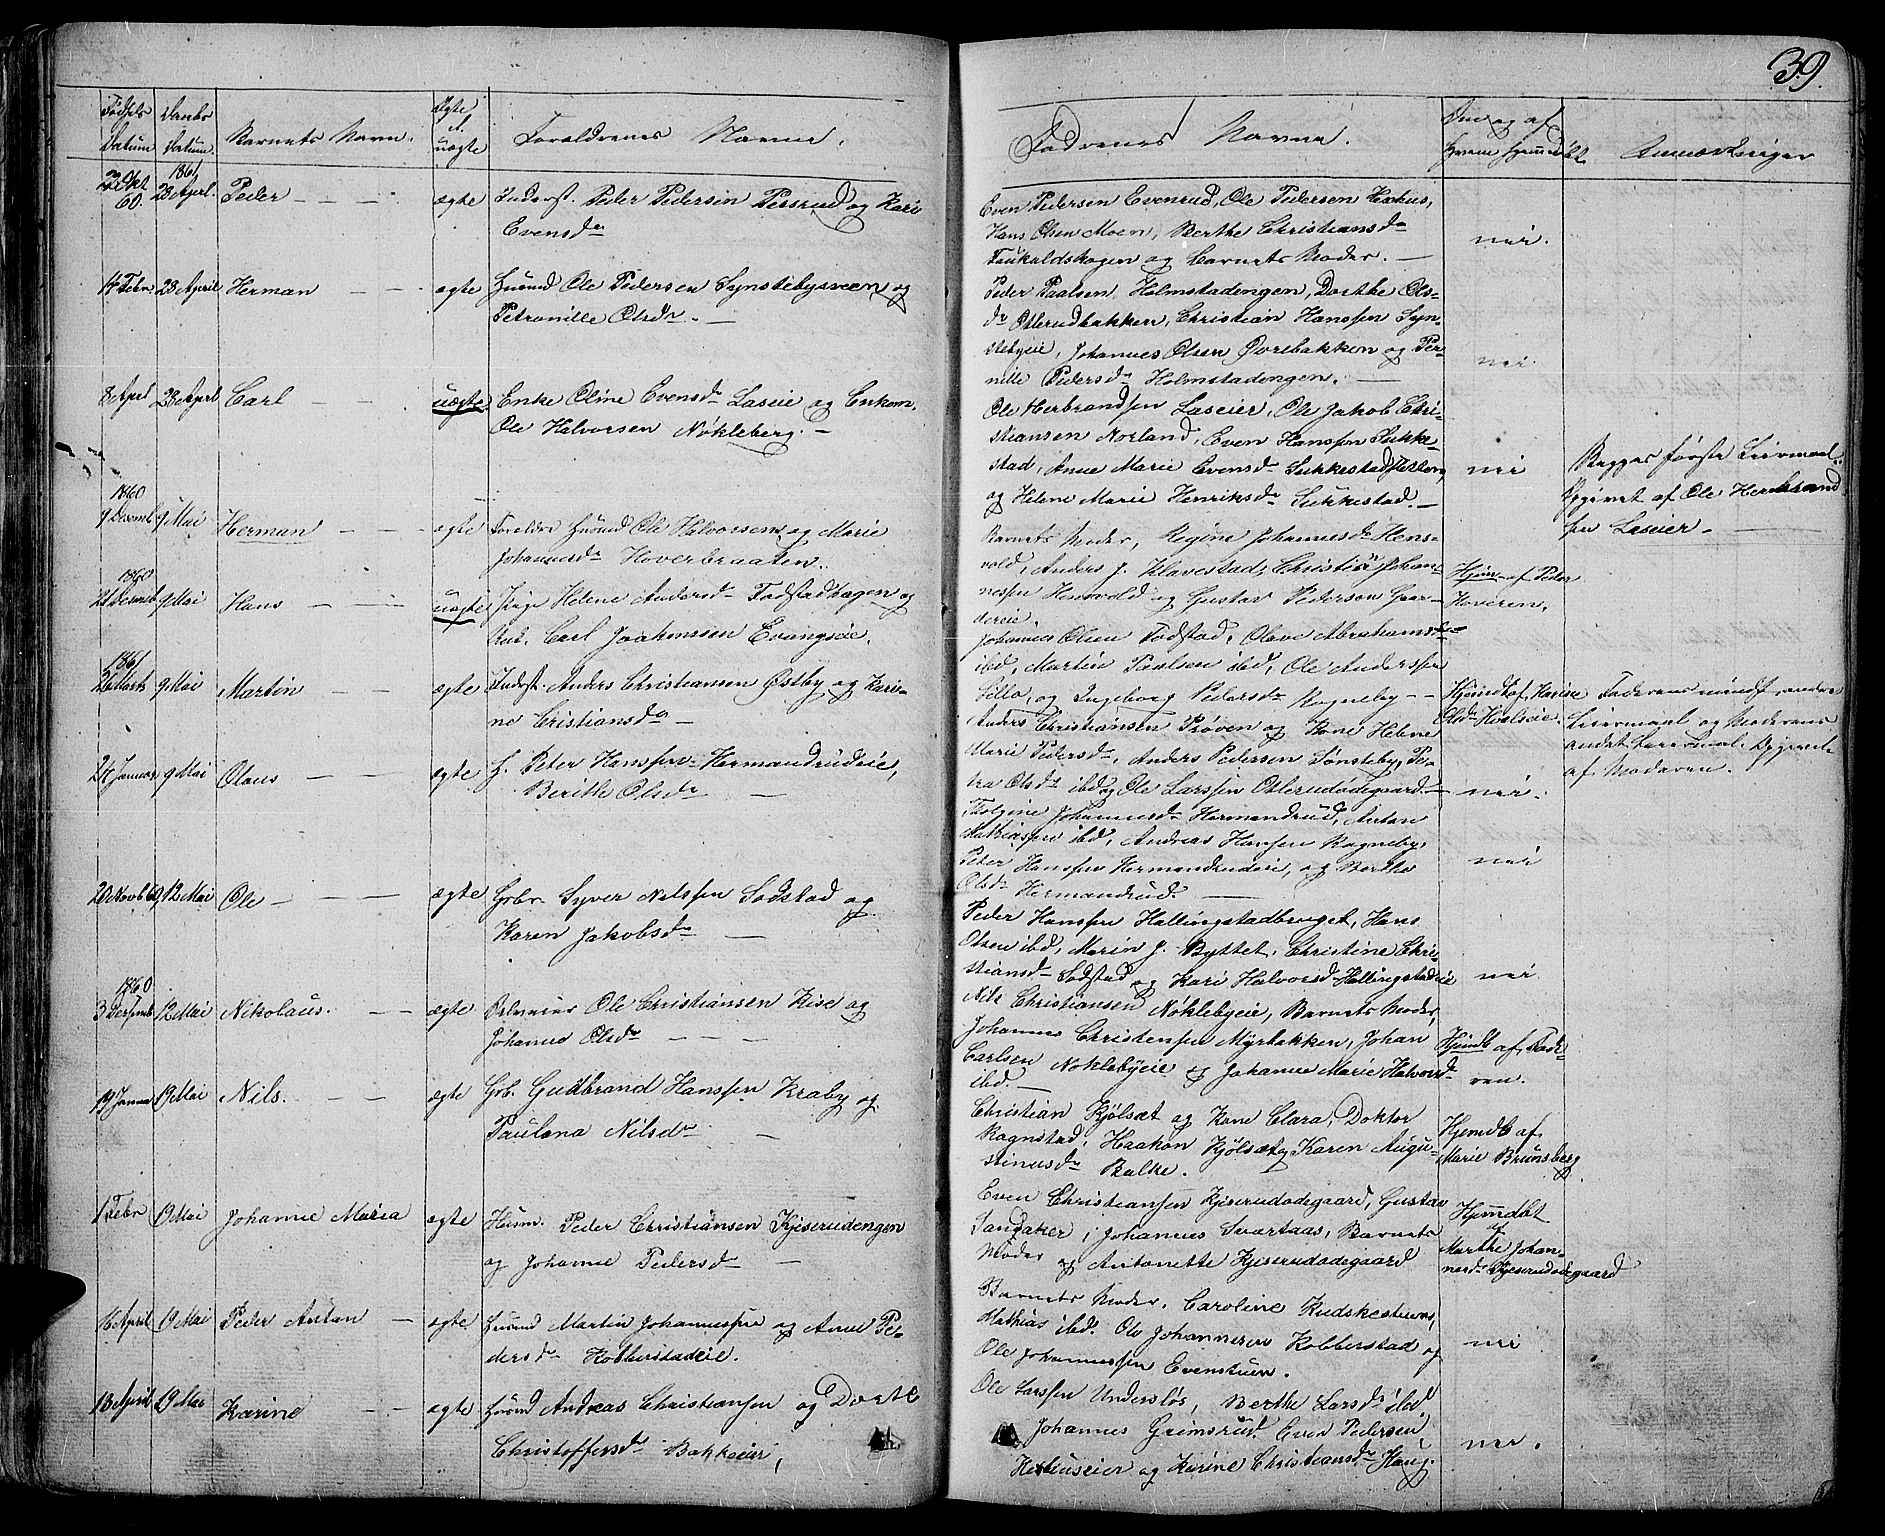 39.
Fødsels Datum
Daabs Datum.
Barnets Navn.
Ægte el. uægte
Forældrenes Navne.
Fadrenes Navne.
Om og af hvem hjemdøbt
Anmærkninger
Okt 60.
1861 23 April.
Peder
ægte
Inderst. Peder Pedersen Persrud og Kari
Evensdr
Even Pedersen Evenrud, Ole Pedersen Hækus,
Hans Olsen Moen, Berthe Christiansdr
Faukaldskogen og Barnets Moder. —
nei.
14 Febr.
23 April
Herman
ægte
Husmd Ole Pedersen Synstebysveen og
Petronille Olsdr. —
Peder Paalsen Holmstadengen, Dorthe Ols-
dr Oterudbakken, Christian Hanssen Syn-
stebyeie, Johannes Olsen Øvrebakken og Per-
nille Pedersdr Holmstadengen. —
nei.
8 April
23 April
Carl
uægte.
Enke Oline Evensdr Laseie og Enkem.
Ole Halvorsen Nøkleberg. —
Ole Herbrandsen Laseier, Ole Jakob Chri-
stiansen Norland, Even Hanssen Sukke-
stad, Anne Marie Evensdr Sukkestad
og Helene Marie Henriksdr Sukkestad. —
nei
Begges første Leiermaal.
Opgivet af Ole Herbrand
sen Laseier. —
1860
9 Desemb
9 Mai
Herman
ægte
Foreldre Husmd Ole Halvorsen og Marie
Johannesdr Hoverbraaten.
Barnets Moder, Regine Johannesdr Hens-
vold, Anders J. Klavestad, Christian Johan-
nessen Hensvold og Gustav Pedersen Gaar-
dereie
Hjem- af Peder
Hoveren.
1860
21 Desemb
9 Mai
Hans
uægte
Pige Helene Andersdr Fodstadhagen og
Ank. Carl Joakimssen Evangsøie.
Johannes Olsen Fodstad, Olave Abrahamsdr
ibd, Martin Paalsen ibd, Ole Anderssen
Lilla, og Ingeborg Pedersdr Rogneby —
Hjemdt af Karine
Olsdr Hoelseie.
Faderens mindst andre
Leiermaal og Moderens
andet Leiermaal. Opgivet
af Moderen.
1861
26 Marts
9 Mai
Martin
ægte
Inderst. Anders Christiansen Østby og Kari-
ne Cristiansdr —
Anders Christiansen Prøven og Kone Helene
Marie Pedersdr, Anders Pedersen Sønsteby, Pe-
tra Olsdr ibd og Ole Larssen Oterudødegaard. —
nei.
24 Januar
9 Mai
Olaus
ægte
H. Peter Hanssen Hermandrudeie,
Berithe Olsdr —
Tholgine Johannesdr Hermandrud, Anton
Mathiassen ibd, Andreas Hansen Rogneby,
Peter Hanssen Hermandrudeie, og Berthe
Olsdr Hermandrud. —
nei
20 Novb 60
12 Mai
Ole
ægte
Grbr. Syver Nilssen Sodstad og
Karen Jakobsdr —
Peder Hanssen Hallingstadbruget, Hans
Olsen ibd, Marin J. Byttet, Christine Chri-
stiansdr Sodstad og Kari Halvorsdr Hallingstadeie
nei.
1860
3 Desemb
12 Mai
Nikolaus.
ægte
Ole Christiansen Kise og
Johanne Olsdr
Nils Christiansen Nøklebyeie, Barnets Moder,
Johannes Christensen Myrbakken, Johan
Carlsen Noklebyeie og Johanne Marie Halvorsdr
ibd. —
Hjemdb af Fade-
ren.
19 Janua
19 Mai
Nils.
ægte
Grb. Gudbrand Hanssen Kraby og
Paulena Nilsdr —
Christian Kjølsæt og Kone Clara, Doktor
Rognstad, Haakon Kjølsæt, Karen Augu-
stinusdr Balke.
Hjemdb af
Marie Brunsberg
1 Febr
19 Mai
Johanne Maria
ægte
Husm. Peder Christiansen Kjeserudengen
og Johanne Pedersdr —
Even Christiansen Kjeserudødegaard, Gustav
Sangaker, Johannes Svartaas, Barnets
Moder og Antonette Kjeserudødegaard
Hjemdøbt
af
Marthe Johan-
nesdr Kjeserudødegaard
16 April
19 Mai
Peder Anton
ægte
Husmd Martin Johannessen og Anne Pe-
dersdr Kobberstadeie.
Barnets Moder, Caroline Kudskestuen,
Mathias ibd. Ole Johannesen Kobberstad og
Ole Johannessen Evenstuen.
nei
13 April
19 Mai
Karine
ægte
Husmd Andreas Christiansen og Dorte
Christoffersdr Bakkeier,
Ole Larssen Undersløs, Berthe Larsdr ibd
Johannes Grimsrud. Even Pedersen
Hækuseier og Karine Christiansdr Haug.
nei.